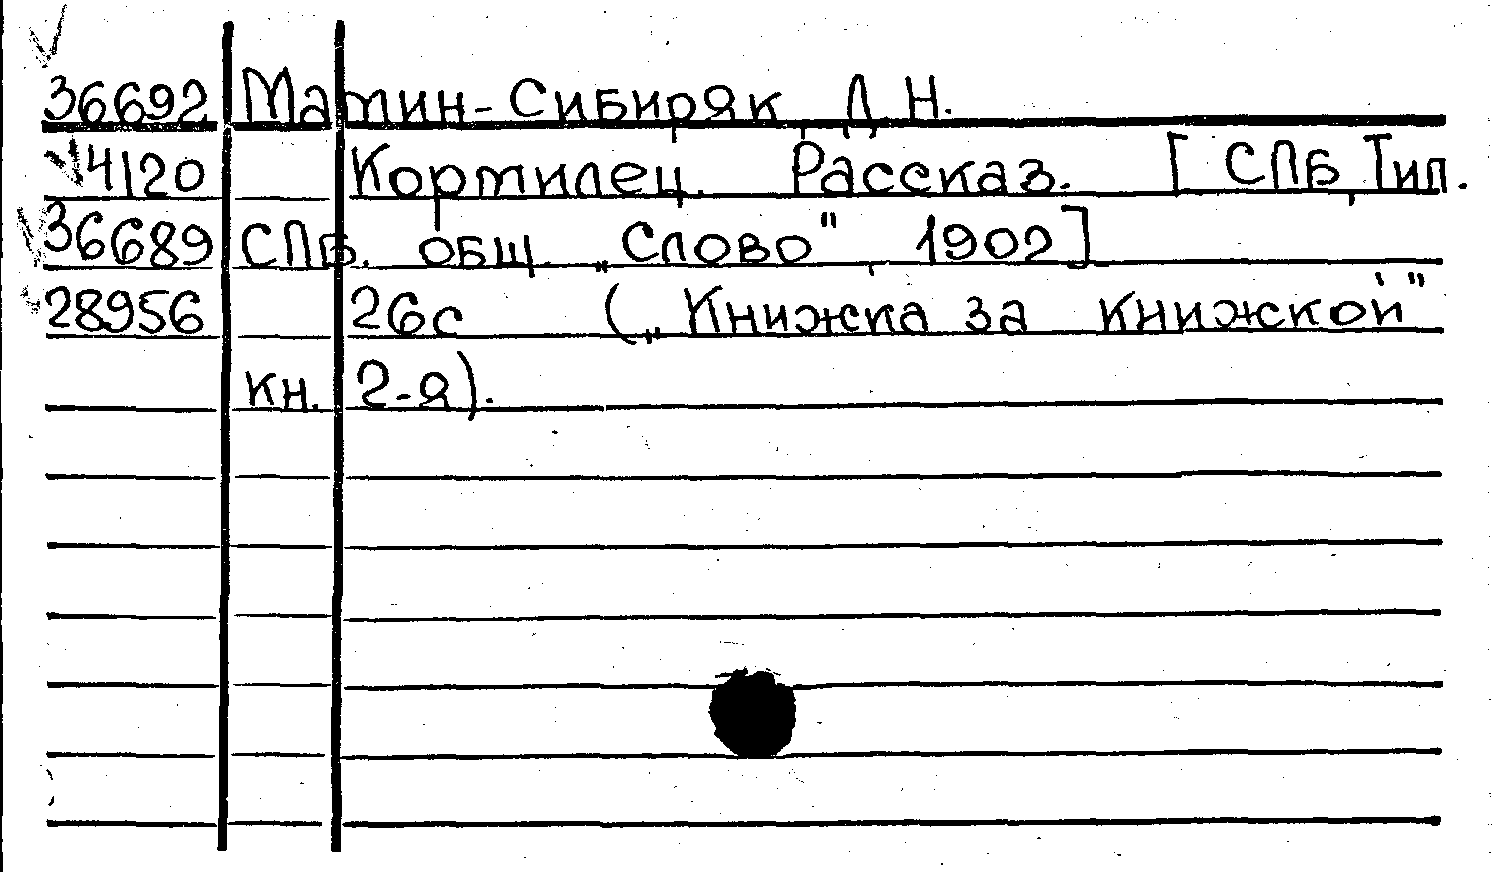 36692 Мамин-Сибиряк, Д.Н.
4120 Кормилец. Рассказ. [СПБ, Тип.
36689 СПБ. общ. „Слово", 1902]
28956 26с („Книжка за книжкой"
кн. 2-я).